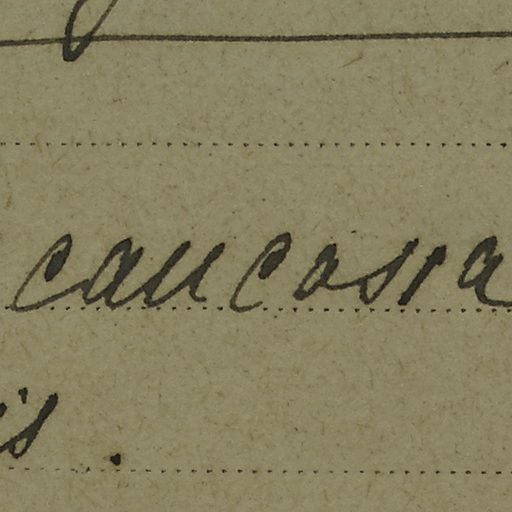 caucasia
is.